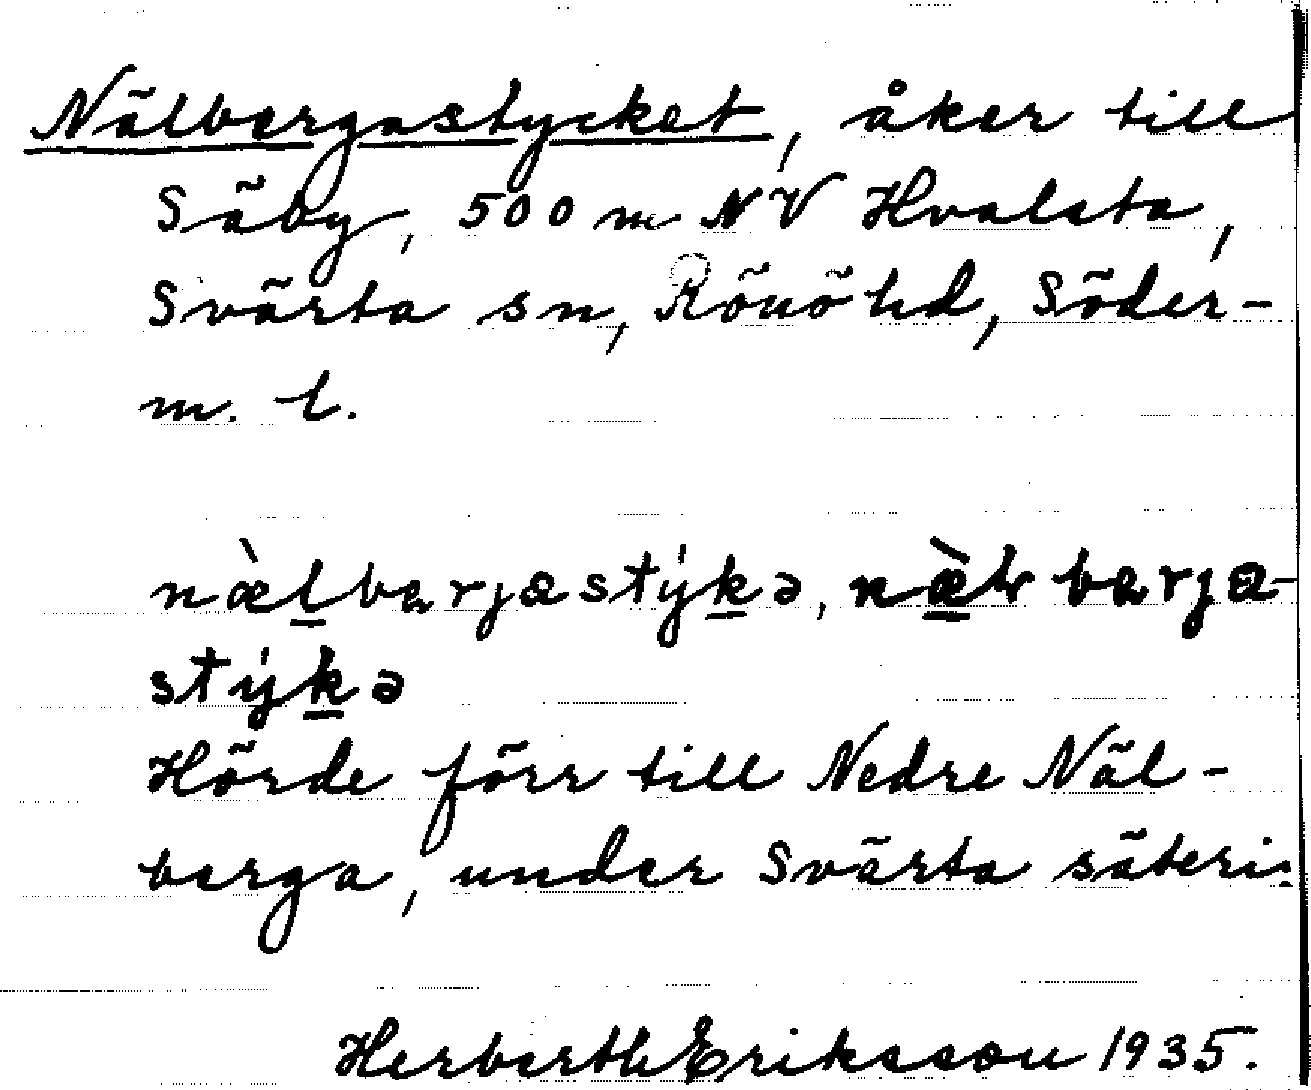 Nälbergastycket, åker till
Säby, 500 m NV Hvalsta,
Svärta sn, Rönö hd, Söder-
m. l.
næ̀lbærjastýkə, næ̀lbærja-
stýkə
Hörde förr till Nedre Näl-
berga, under Svärta säteri.
Herberth Eriksson 1935.